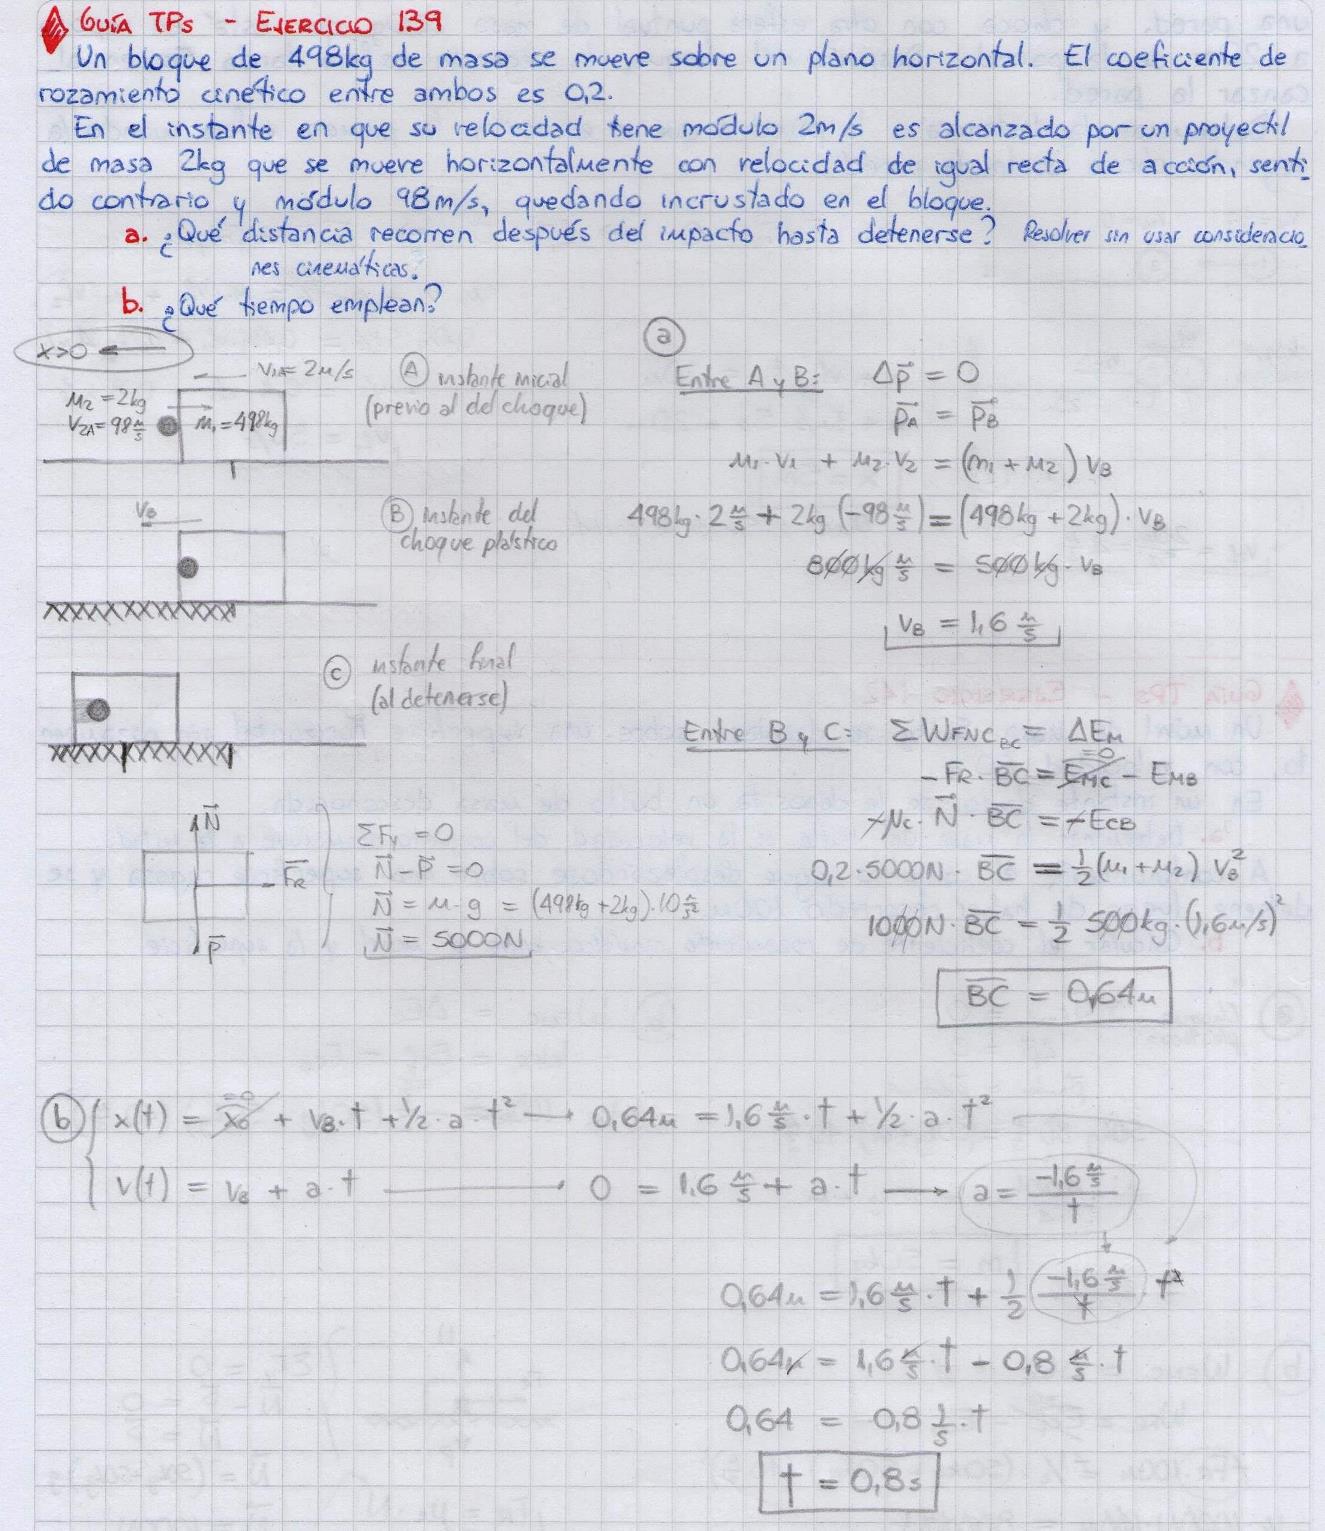 GUÍA TPs - EJERCICIO 139
Un bloque de 498kg de masa se mueve sobre un plano horizontal. El coeficiente de
rozamiento cinético entre ambos es 0,2.
En el instante en que su velocidad tiene módulo 2m/s es alcanzado por un proyectil
de masa 2kg que se mueve horizontalmente con velocidad de igual recta de acción, senti
do contrario y módulo 98m/s, quedando incrustado en el bloque.
a. ¿Qué distancia recorren después del impacto hasta detenerse? Resolver sin usar consideracio
nes cinemáticas.
b. ¿Qué tiempo emplean?
x>0 ←
V1A = 2m/s
M2 = 2kg
V2A = 98 m/s
m1 = 498kg
A instante inicial
(previo al del choque)
VB
B instante del
choque plástico
C instante final
(al detenerse)
N
FR
P
ΣFy = 0
N - P = 0
N = m·g = (498kg + 2kg)·10 m/s²
N = 5000N
a
Entre A y B: Δp = 0
pA = pB
m1·V1 + m2·V2 = (m1 + m2) VB
498kg·2 m/s + 2kg (-98 m/s) = (498kg + 2kg)·VB
800kg m/s = 500kg·VB
VB = 1,6 m/s
Entre B y C: ΣWFNC BC = ΔEM
-FR·BC = EMC =0 - EMB
-μc·N·BC = -ECB
0,2·5000N·BC = ½(m1 + m2) VB²
1000N·BC = ½ 500kg·(1,6m/s)²
BC = 0,64m
b x(t) = x0 =0 + VB·t + 1/2·a·t² → 0,64m = 1,6 m/s·t + 1/2·a·t²
v(t) = VB + a·t → 0 = 1,6 m/s + a·t → a = -1,6 m/s / t
0,64m = 1,6 m/s·t + 1/2 -1,6 m/s / t · t²
0,64m = 1,6 m/s·t - 0,8 m/s·t
0,64 = 0,8 1/s·t
t = 0,8s